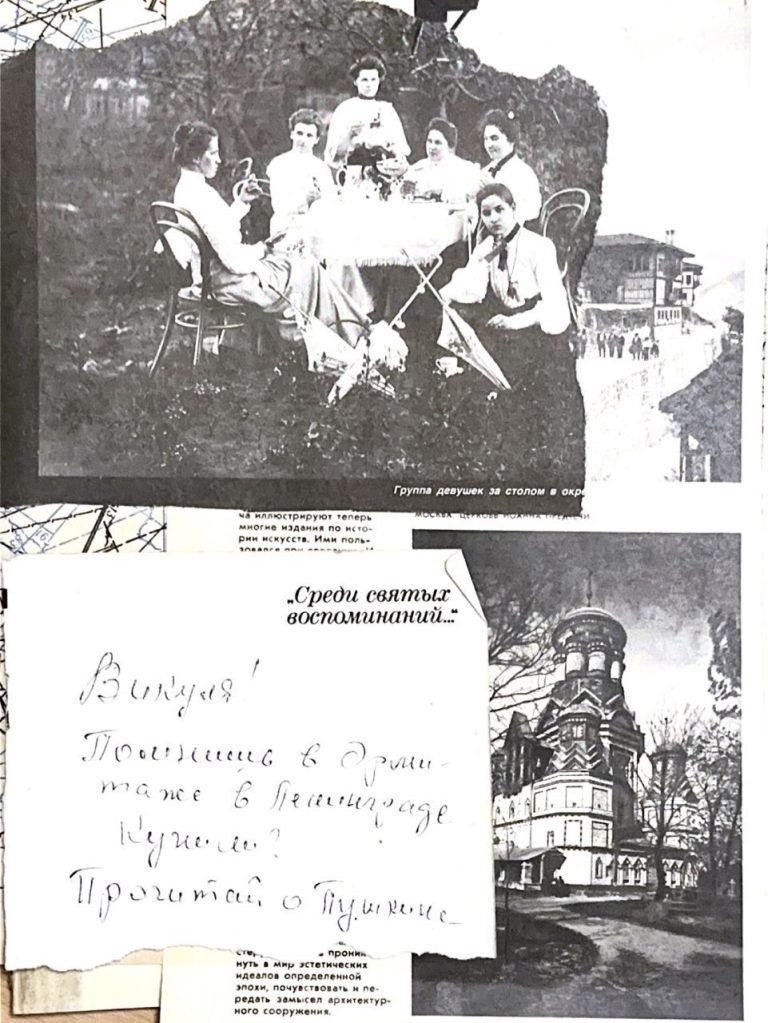 Группа девушек за столом в окре
ча иллюстрируют теперь
многие издания по исто-
рии искусств. Ими поль-
МОСКВА. ЦЕРКОВЬ ИОАННА ПРЕДТЕЧИ
„Среди святых
воспоминаний..."
Викуля!
Помнишь в Эрми-
таже в Ленинграде
Купили?
Прочитай о Пушкине
проник
нуть в мир эстетических
идеалов определенной
эпохи, почувствовать и пе-
редать замысел архитектур-
ного сооружения.